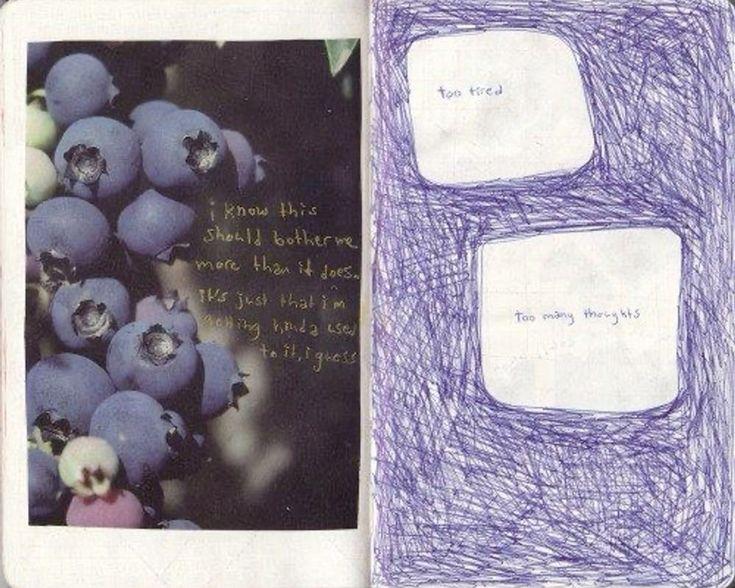 i know this
should bother me
more than it does.
it's just that i'm
getting kinda used
to it, i guess
too tired
too many thoughts